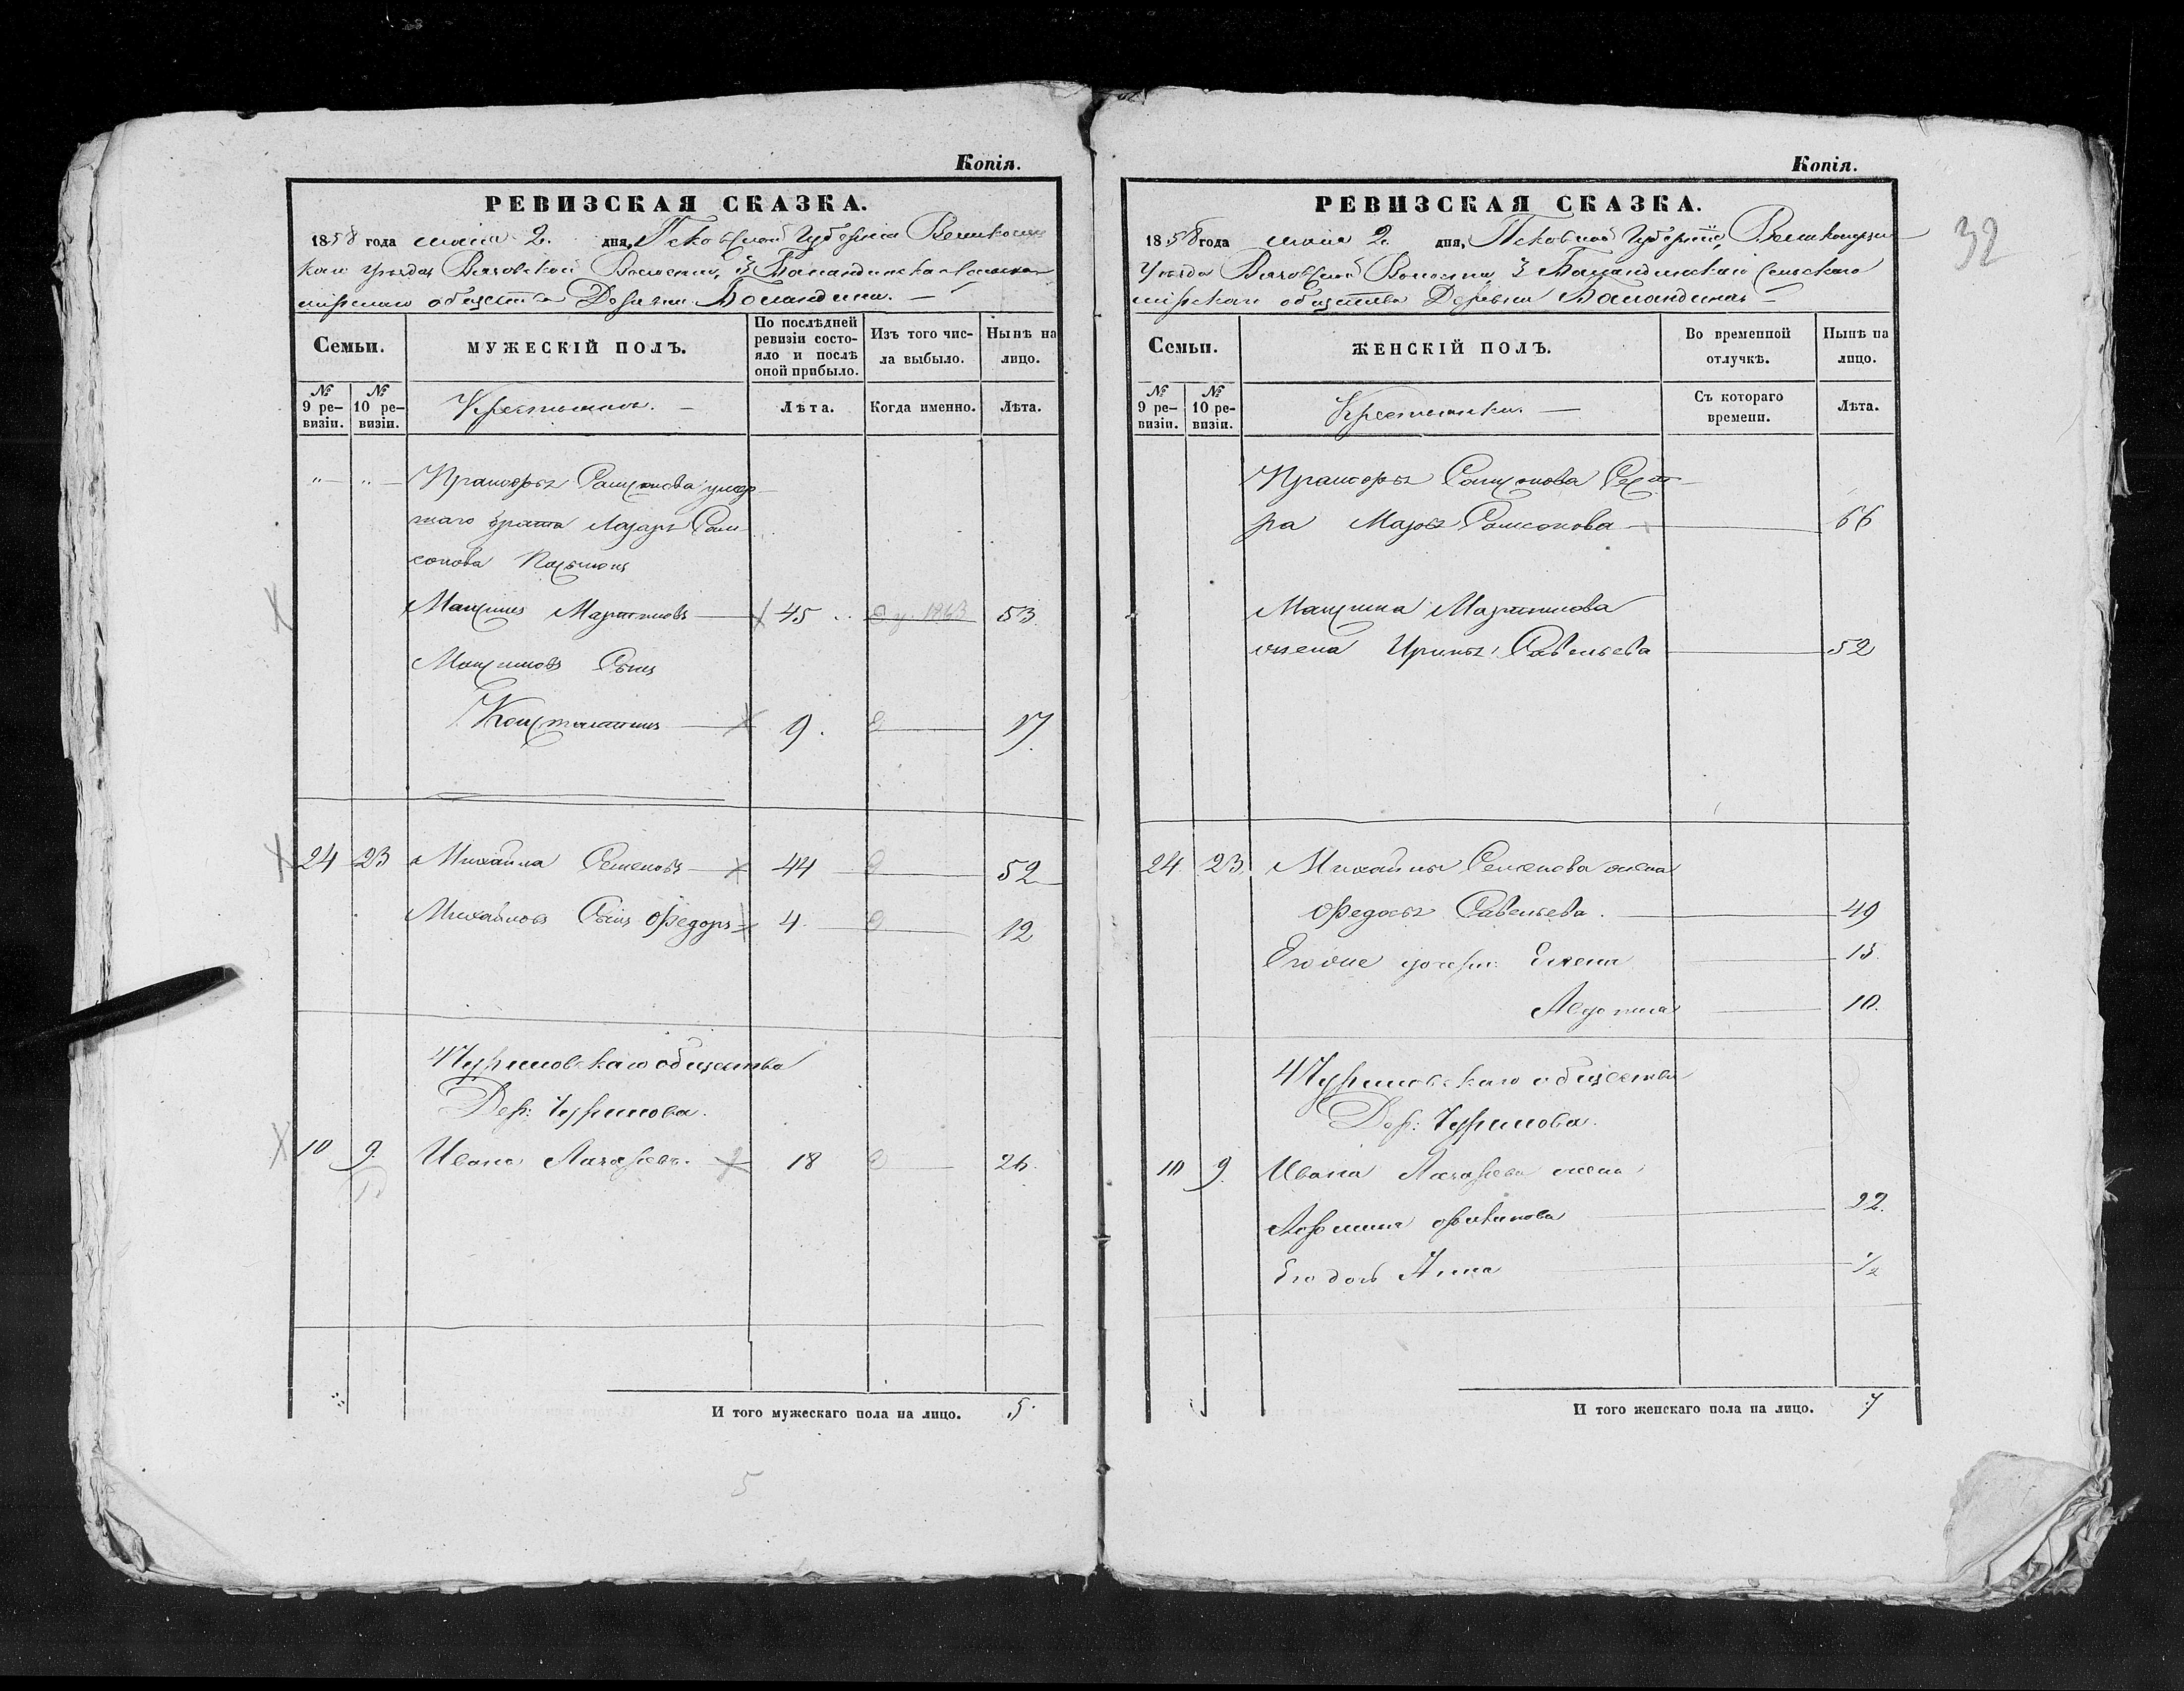 Копія.
РЕВИЗСКАЯ СКАЗКА.
1858 года маія 2. дня, Псковской Губерніи Великолуц
каго Уѣзда Вязовской Волости, 3 Баландинскаго Сельскаго
мірскаго общества Деревни Баландина. —
Семьи.
МУЖЕСКІЙ ПОЛЪ.
По послѣдней
ревизіи состо-
яло и послѣ
оной прибыло.
Изъ того чис-
ла выбыло.
Нынѣ на
лицо.
№
9 ре-
визіи.
№
10 ре-
визіи.
Крестьяне. —
Лѣта.
Когда именно.
Лѣта.
"— "— Самсонова умер
шаго брата Лазаря Сам
сонова
Максимъ Мартиновъ — 45 1863 53.
Максимовъ Сынъ
Константинъ — 9. 17.
24 23 Михайла Семеновъ — 44 52
Михайловъ Сынъ Федоръ 4. 12
Чуриловскаго общества
Дер: Чурилова.
10 9. Иванъ Лазаревъ. 18 26.
И того мужескаго пола на лицо. 5.
5
Копія.
РЕВИЗСКАЯ СКАЗКА.
1858 года маія 2. дня, Псковской Губерніи, Великолуцк
Уѣзда Вязовской Волости 3 Баландинскаго Сельскаго
мірскаго общества Деревни Баландина —
32
Семьи.
ЖЕНСКІЙ ПОЛЪ.
Во временной
отлучкѣ.
Нынѣ на
лицо.
№
9 ре-
визіи.
№
10 ре-
визіи.
Крестьянки. —
Съ котораго
времени.
Лѣта.
Самсонова Сест
ра Марья Самсонова — 66
Максима Мартинова
жена Ирина Савельева 52
24. 23. Михайлы Семенова жена
Федосья Савельева. — 49
Его же дочери: Елена 15.
Авдотья 10.
Чуриловскаго общества
Дер: Чурилова.
10 9. Ивана Лазарева жена
22.
Его дочь Анна 1/2
И того женскаго пола на лицо. 7